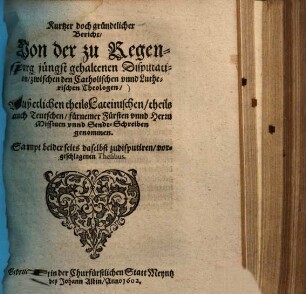 Kurtzer doch gründelicher
Bericht/
Von der zu Regen-
spurg jüngst gehaltenen Disputati-
on/ zwischen den Catholischen vnnd Luthe-
rischen Theologen/
Auß etlichen theils Lateinischen/ theils
auch Teutschen/ fürnemer Fürsten vnnd Herrn
Missiuen vnnd Sende-Schreiben
genommen.
Sampt beider seits daselbst zudisputiren/ vor-
geschlagenen Thesibus.
in der Churfürstlichen Statt Meyntz
bey Johann Albin/ Anno 1602.